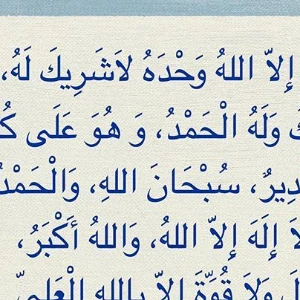 إِلاّ اللهُ وَحْدَهُ لاَشَرِيكَ لَهُ،
وَلَهُ الْحَمْدُ، وَ هُوَ عَلَى
سُبْحَانَ اللهِ، وَالْحَمْدُ
إِلَهَ إِلاّ اللهُ، وَاللهُ أَكْبَرُ،
وَلاَ قُوَّةَ إِلاّ بِاللهِ الْعَلِيِّ